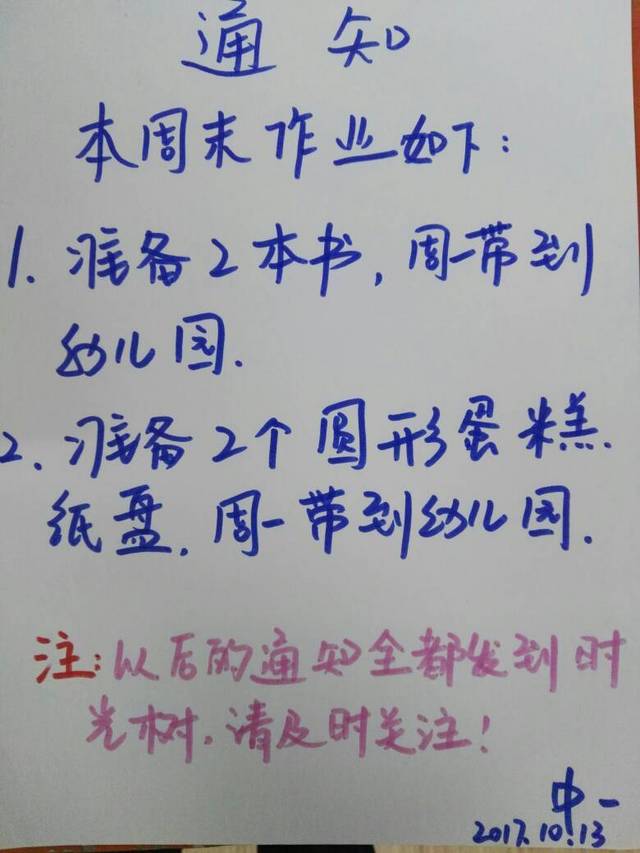 通知
本周末作业如下：
1. 准备2本书，周一带到
幼儿园.
2. 准备2个圆形蛋糕
纸盘，周一带到幼儿园.
注：以后的通知全都发到时
光树，请及时关注！
中一
2017.10.13